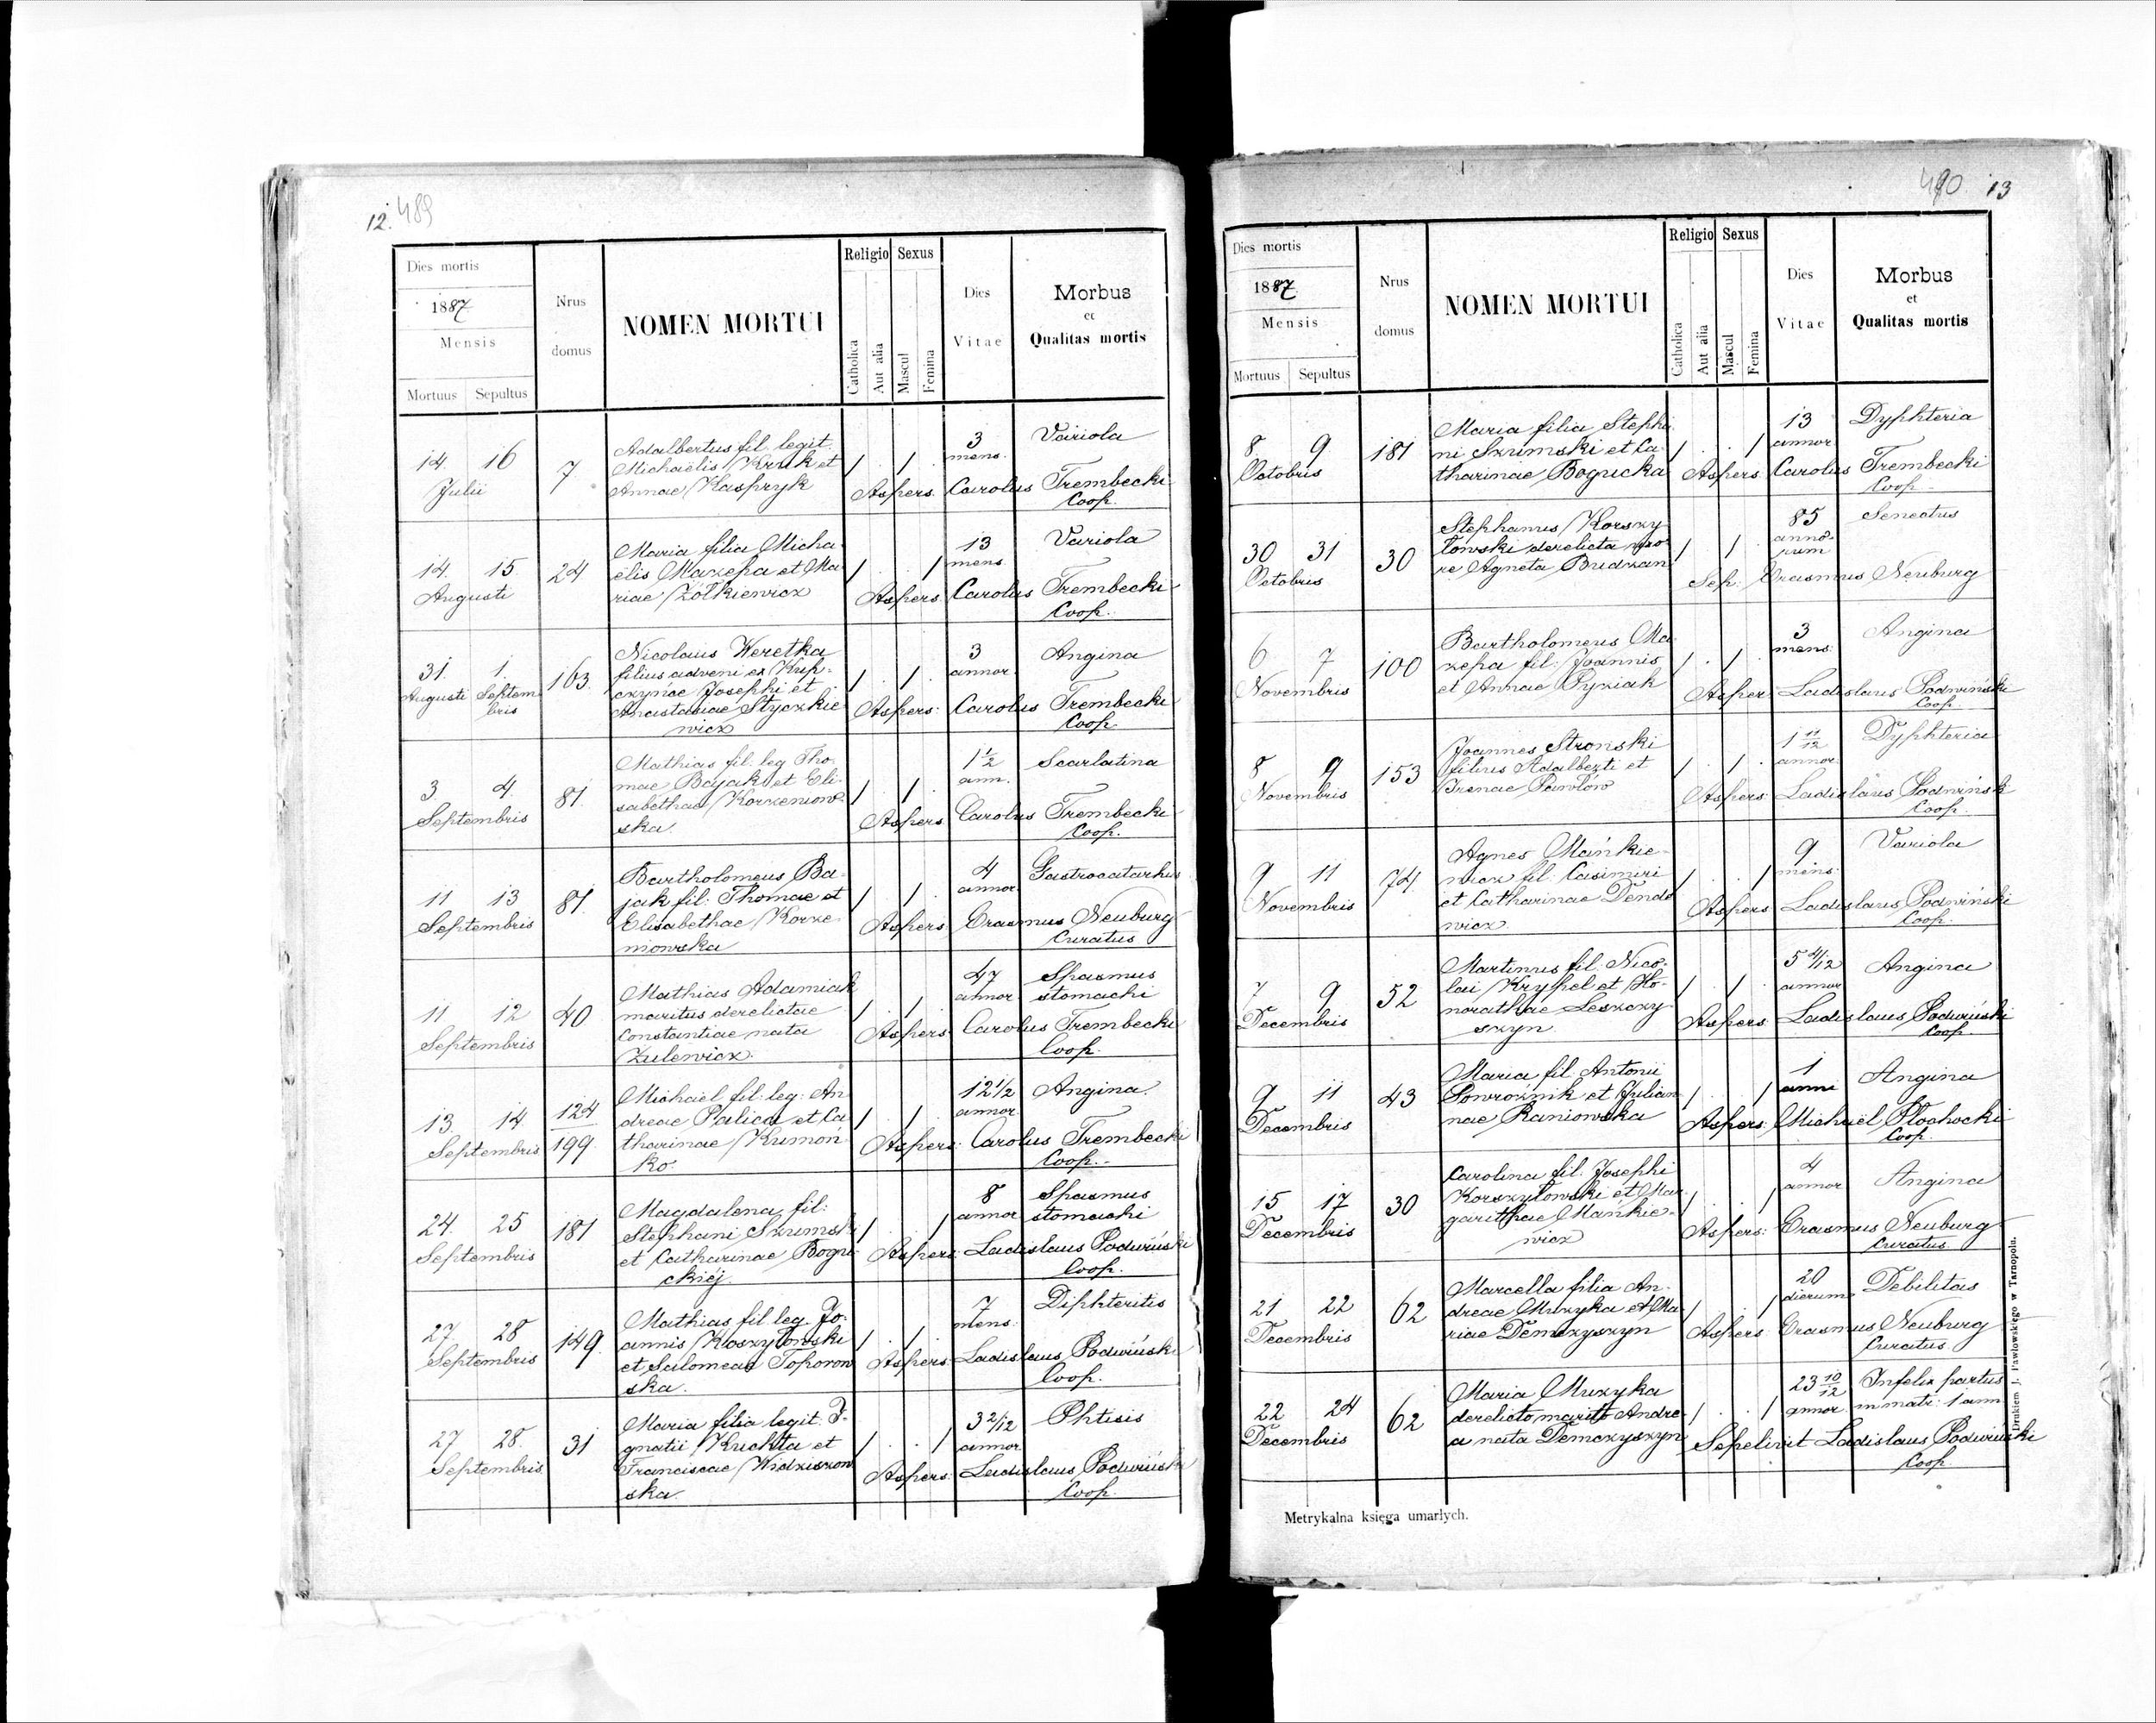 12. 489
Dies mortis
1887
Mensis
Mortuus Sepultus
Nrus
domus
NOMEN MORTUI
Religio Sexus
Catholica
Aut alia
Mascul
Femina
Dies
Vitae
Morbus
et
Qualitas mortis
14. 16
Julii
7.
Adalbertus fil. legit.
Michaëlis Kruk et
Annae Kasprzyk
/ . / .
3
mens.
Variola
Aspers. Carolus Trembecki
Coop.
14. 15
Augusti
24
Maria filia Micha
ëlis Mazepa et Ma
riae Żółkiewicz
/ . . /
13
mens.
Variola
Aspers. Carolus Trembecki
Coop.
31. 1.
Augusti Septem
bris
163.
Nicolaus Weretka
filius adveni ex Krup-
czynae Josephi et
Anastasiae Styczkie
wicz
/ . / .
3
annor.
Angina
Aspers. Carolus Trembecki
Coop.
3 4.
Septembris
81.
Mathias fil. leg Tho
mae Bajak et Eli
sabethae Korzeniow
ska
/ . / .
1 1/2
ann.
Scarlatina
Aspers. Carolus Trembecki
Coop.
11 13
Septembris
81.
Bartholomeus Ba-
jak fil. Thomae et
Elisabethae Korze
niowska
/ . / .
4
annor.
Gastrocatarhus
Aspers. Erasmus Neuburg
Curatus
11 12
Septembris
40
Mathias Adamiak
maritus derelictae
Constantiae nata
Zulewicz.
/ . / .
47
annor.
Spasmus
stomachi
Aspers. Carolus Trembecki
Coop.
13. 14
Septembris
124
199.
Michaël fil: leg: An
dreae Palica et Ca
tharinae Kumoń
ko.
/ . / .
12 1/2
annor
Angina.
Aspers. Carolus Trembecki
Coop.
24. 25
Septembris
181
Magdalena fil:
Stephani Szumski
et Catharinae Bogu
ckiéj
/ . . /
8
annor
Spasmus
stomachi
Aspers. Ladislaus Podwiński
Coop.
27. 28
Septembris
149.
Mathias fil leg. Jo-
annis Koszyłowski
et Salomeae Toporow
ska.
/ . / .
7
mens.
Diphteritis
Aspers. Ladislaus Podwiński
Coop.
27. 28.
Septembris.
31
Maria filia legit. I-
gnatii Kuchta et
Franciscae Widziszow
ska.
/ . . /
3 2/12
annor
Phtisis
Aspers. Ladislaus Podwiński
Coop.
490 13
Dies mortis
1887.
Mensis
Mortuus Sepultus
Nrus
domus
NOMEN MORTUI
Religio Sexus
Catholica
Aut alia
Mascul
Femina
Dies
Vitae
Morbus
et
Qualitas mortis
8. 9
Octobris
181
Maria filia Stepha
ni Szumski et Ca
tharinae Bogucka
/ . . /
13
annor.
Dyphteria
Aspers. Carolus Trembecki
Coop.
30 31
Octobris
30
Stephanus Korszy
łowski derelicta uxo
re Agneta Budzan
/ /
85
anno-
rum
Senectus
Sep. Erasmus Neuburg
6 7
Novembris
100
Bartholomeus Ma
zepa fil. Joannis
et Annae Pyziak
/ . / .
3
mens.
Angina
Asper. Ladislaus Podwiński
Coop.
8 9
Novembris
153
Joannes Stronski
filius Adalberti et
Irenae Pawlów
/ . / .
1 11/12
annor.
Dyphteria
Aspers. Ladislaus Podwiński
Coop.
9 11
Novembris
74.
Agnes Mańkie-
wicz fil. Casimiri
et Catharinae Dende
wicz.
/ . . /
9
mens.
Variola
Aspers. Ladislaus Podwiński
Coop.
7 9
Decembris
52
Martinus fil. Nico-
lai Krypel et Ho-
norathae Leszczy
szyn.
/ . / .
5 4/12
annor
Angina
Aspers. Ladislaus Podwiński
Coop.
9 11
Decembris
43
Maria fil. Antonii
Powroźnik et Julian
nae Raniowska
/ . . /
1
anni
Angina
Aspers. Michaël Płochocki
Coop.
15 17
Decembris
30
Carolina fil. Josephi
Korszyłowski et Mar
garithae Mańkie-
wicz
/ . . /
4
annor
Angina
Aspers. Erasmus Neuburg
Curatus.
21 22
Decembris
62
Marcella filia An-
dreae Muzyka et Ma
riae Demczyszyn
/ . . /
20
dierum
Debilitas
Aspers. Erasmus Neuburg
Curatus.
22 24
Decembris
62
Maria Muzyka
derelicto marito Andre
a nata Demczyszyn
/ . . /
23 10/12
annor.
Infelix partus
in matr. 1 ann
Sepelivit Ladislaus Podwiński
Coop.
Metrykalna księga umarłych.
Drukiem J. Pawłowskiego w Tarnopolu.